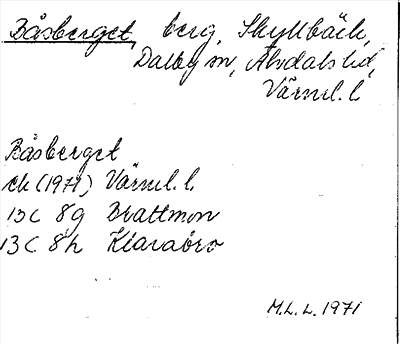 Båsberget, berg, Skyllbäck,
Dalby sn, Älvdals hd,
Värml. l.
Båsberget
ek (1971) Värml. l.
13C 8g Brattmon
13C 8h Klarabro
M.L.L. 1971